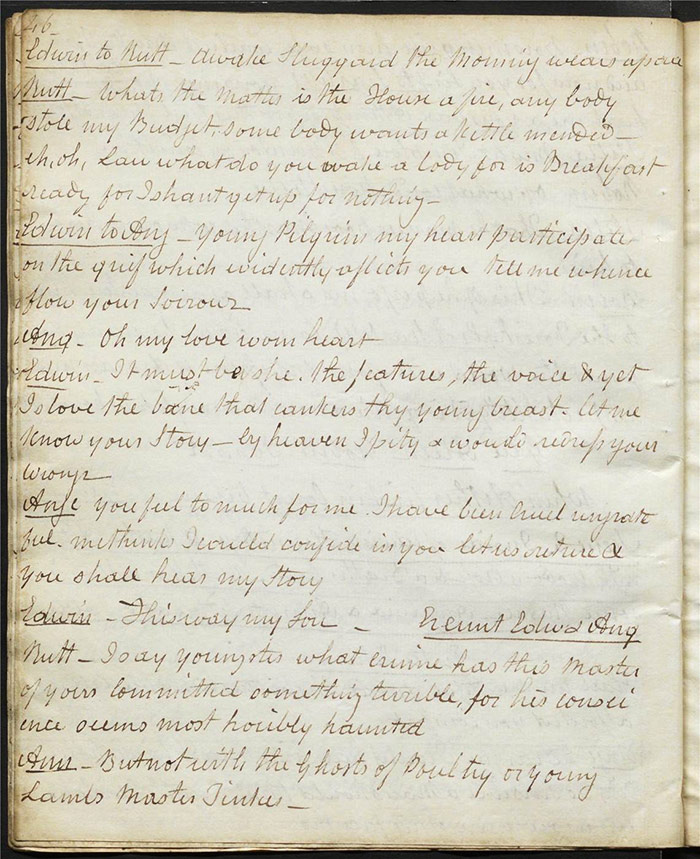 46
Edwin to Nutt - Awake Sluggard the Morning wears apace
Nutt - Whats the matter is the House a fire, any body
stole my Budget. some body wants a kettle mended -
eh, oh, Law what do you wake a body for is Breakfast
ready for I shant get up for nothing -
Edwin to Ang - Young Pilgrim my heart participate
on the grief which evidently aflicts you tell me whence
flow your Sorrows
Ang - Oh my love worn heart
Edwin - It must be she. the features, the voice & yet
Is love the bane that cankers thy young breast. let me
know your Story - by heaven I pity & would redress your
wrongs
Ange you feel to much for me. I have been cruel ungrate
ful. methinks I could confide in you let us retire &
you shall hear my Story
Edwin - This way my Son - Exeunt Edw & Ang
Nutt - I say youngster what crime has this Master
of yours committed something terrible, for his consci
ence seems most horibly haunted
Ann - But not with the Ghosts of Poultry or young
Lambs Master Tinker -